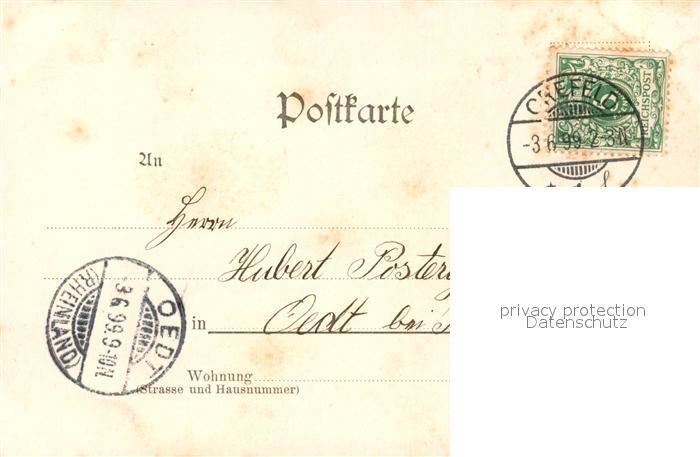 REICHSPOST
CREFELD
-3 6 99 2-3N
Postkarte
An
Herrn
Hubert
Oedt bei
in
OEDT
3 6 99 9-10N
(RHEINLAND)
Wohnung
(Strasse und Hausnummer)
privacy protection
Datenschutz